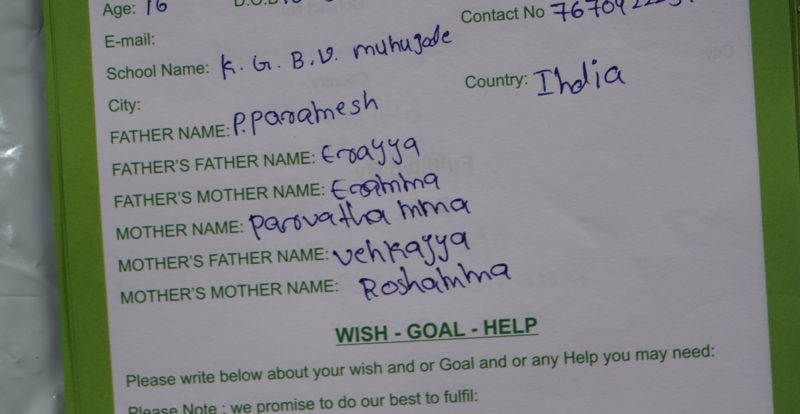 Age: 16
Contact No
E-mail:
School Name: K. G. B. V. muhugode
City:
Country: India
FATHER NAME: P. Paramesh
FATHER'S FATHER NAME: Erayya
FATHER'S MOTHER NAME: Eramma
MOTHER NAME: Parovatha mma
MOTHER'S FATHER NAME: Venkayya
MOTHER'S MOTHER NAME: Roshamma
WISH - GOAL - HELP
Please write below about your wish and or Goal and or any Help you may need:
Please Note : we promise to do our best to fulfil: